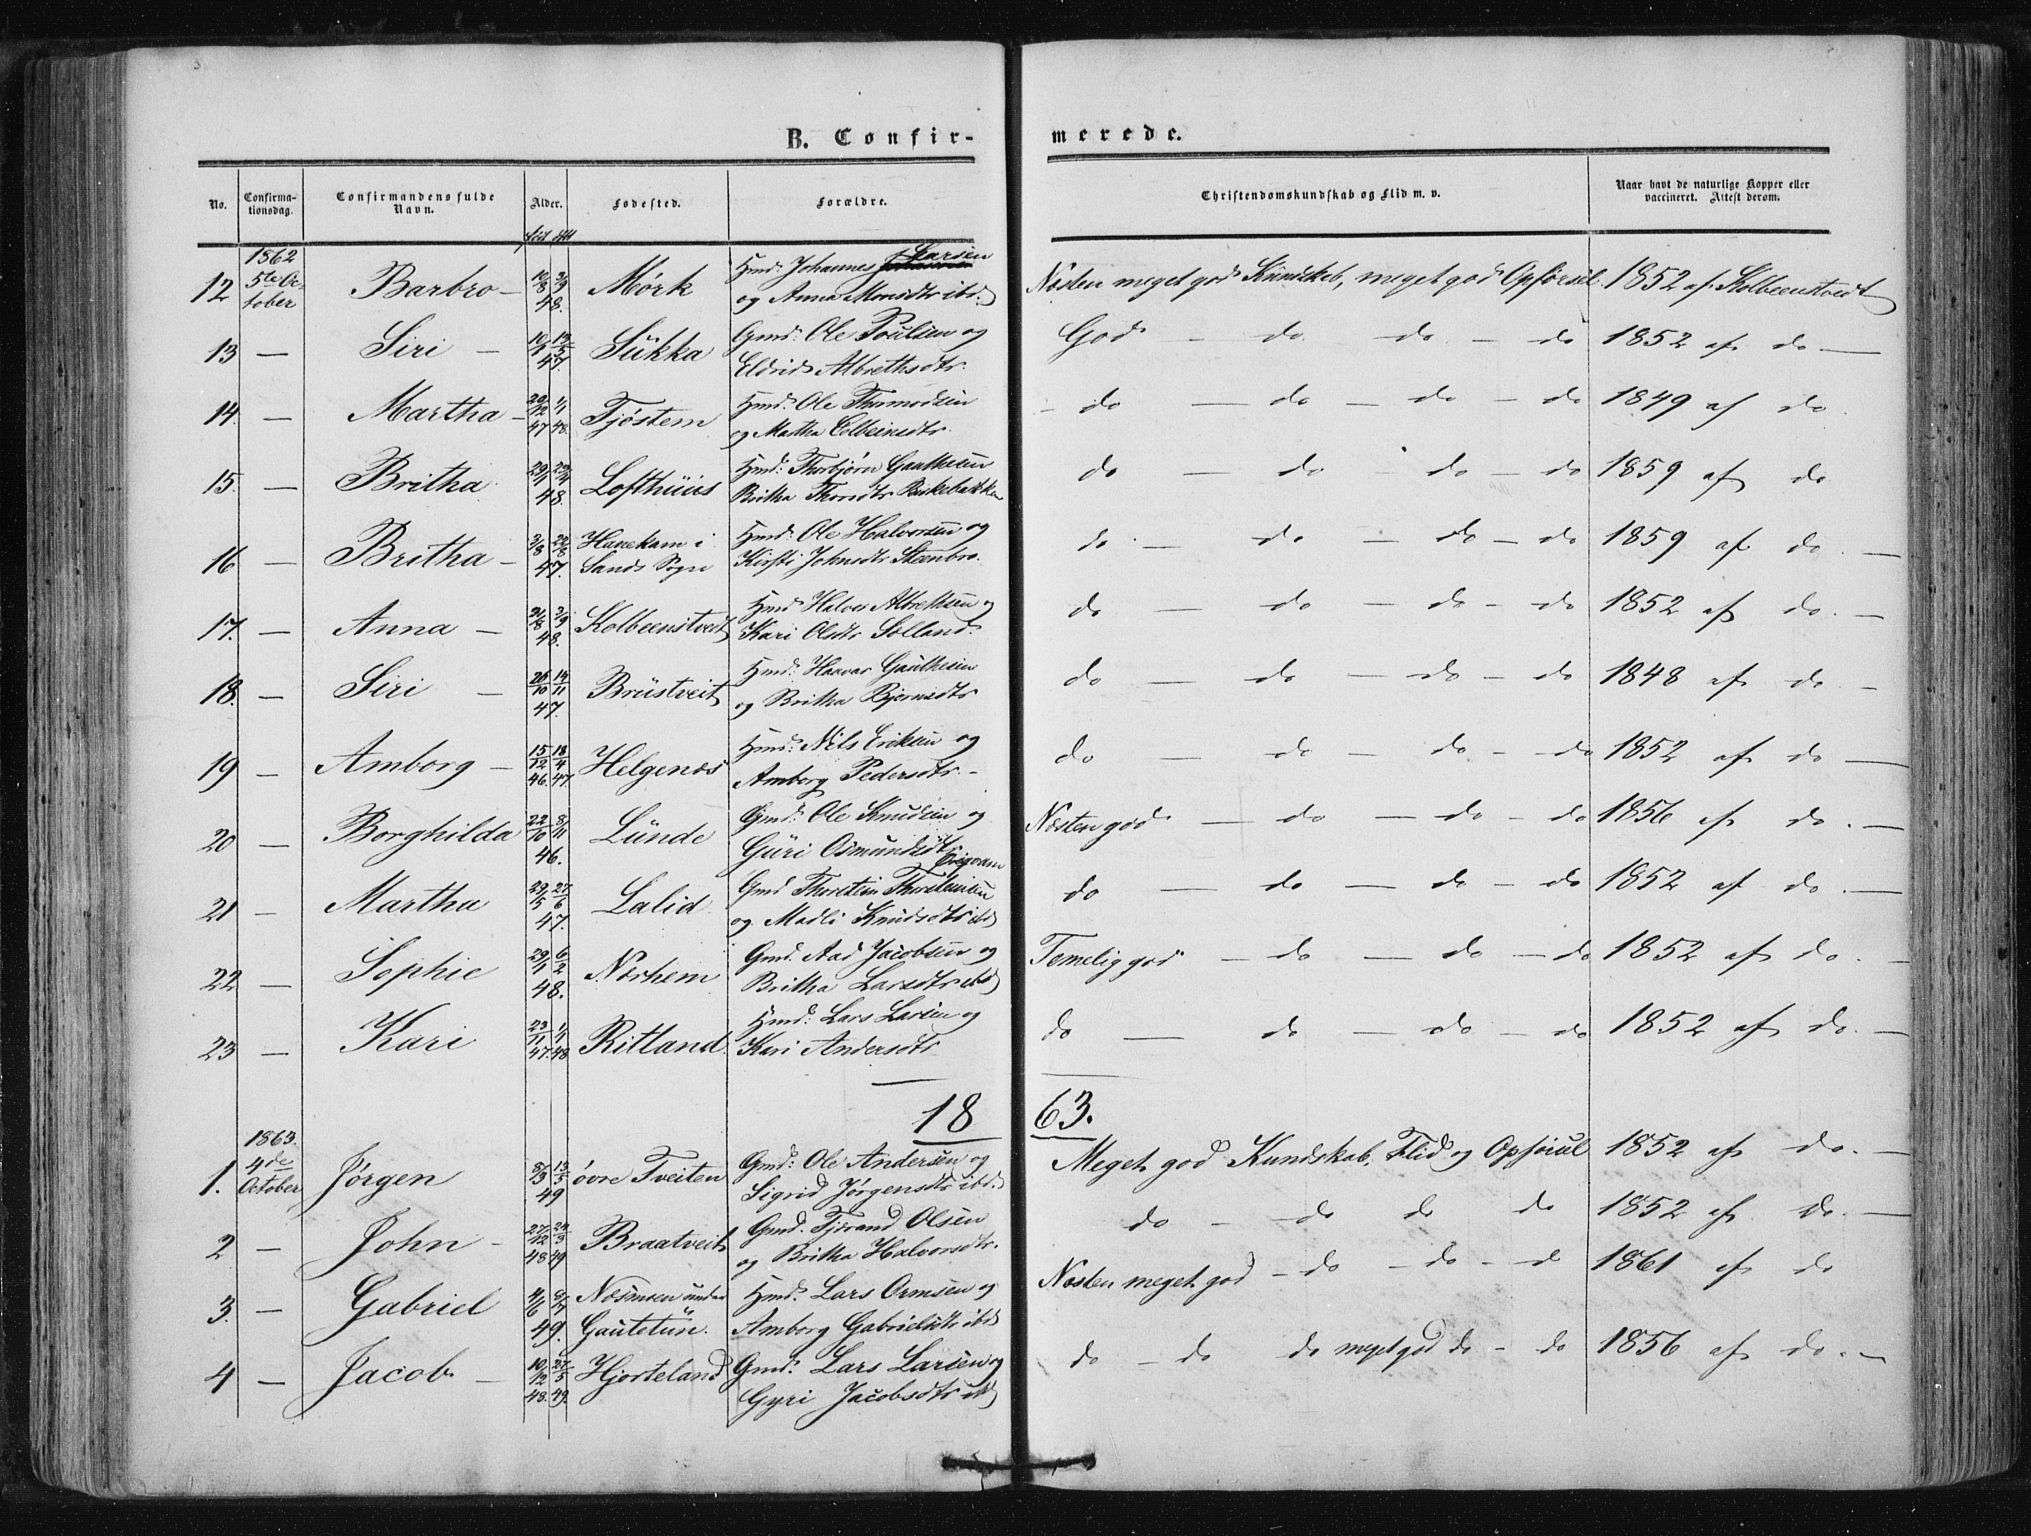 B. Confir-
merede.
No.
Confirma-
tionsdag.
Confirmandens fulde
Navn.
Alder.
Fødested.
Forældre.
Christendomskundskab og Flid m. v.
Naar havt de naturlige Kopper eller
vaccineret. Attest derom.
1862
12 5te Oc- Barbro - 48. Mörk Hmd: Johannes Larsen
tober og Anna Monsdtr ibd. Næsten meget god Kundskab, meget god Opførsel. 1852 af Kolbeenstvedt
13 — Siri — 10/4 13/5 47. Sükka Gmd: Ole Poulsen og
Eldrid Albrethsdtr. God - do do - do 1852 af do —
14. — Martha - 29/12 47 1/1 48. Tjöstem Hmd: Ole Thormodsen
og Martha Colbeinsdtr. - do — do — do - do 1849 af do.
15. — Britha 48. Lofthüüs Hmd: Thorbjørn Gauthesen
Britha Thorsdtr Birkebakken do — do — do - do 1859 af do
16 — Britha - 47. Hanekam i Hmd: Ole Halvorsen og
Sands Sogn Kirsti Johnsdtr Steenbro. do. — do — do - do 1859 af do. —
17. — Anna — 21/8 3/9 48. Kolbeenstvedt Hmd: Halvor Albrethsen og
Kari Olsdtr Sølland. do — do — do - do 1852 af do. —
18. — Siri — 14/11 47. Brüstveit Hmd: Haavar Gauthesen
og Britha Bjørnsdtr do — do — do - do 1848 af do -
19 — Amborg — 15/12 46. 18/4 47. Helgenæs Hmd: Nils Eriksen og
Amborg Pedersdtr. - do — do — do - do 1852 af do —
20 — Borghilda 22/10 8/11 46. Lünde Gmd: Ole Knudsen og
Guri Osmundsdtr Næsten god — do — do - do 1856 af do. —
21 — Martha 29/5 27/6 47. Lalid. Gmd Thorstein Thorsteinsen
og Madli Knudsdtr ibd do — do — do - do 1852 af do. —
22 — Sophie 29/1 6/2 48. Nørhem Gmd. Aad Jacobsen og
Britha Larsdtr ibd Temelig god - do — do — do 1852 af do. -
23 — Kari 23/11 47. 1/1 48 Ritland. Hmd: Lars Larsen og
Kari Andersdtr. do — do — do - do 1852 af do. —
18 63.
1863.
1. 4de Jørgen 8/3 13/5 49 övre Tveiten Gmd: Ole Andersen og
October Sigrid Jørgensdtr ibd. Meget god Kundskab, Flid og Opførsel 1852 af do. —
2 — John - 27/12 48 24/3 49 Braatveit Gmd. Tjerand Olsen
og Britha Halvorsdtr. do - do do do 1852 af do. —
3. — Gabriel 4/6 8/7 49. Næsmoen under Hmd. Lars Ormsen og
Gautetün. Amborg Gabrielsdtr ibd Næsten meget god - do - do - do 1861 af do
4 — Jacob. — 10/12 48. 27/5 49. Hjorteland Gmd: Lars Larsen og
Gyri Jacobsdtr ibd do - do do meget god do - do 1856 af do. —